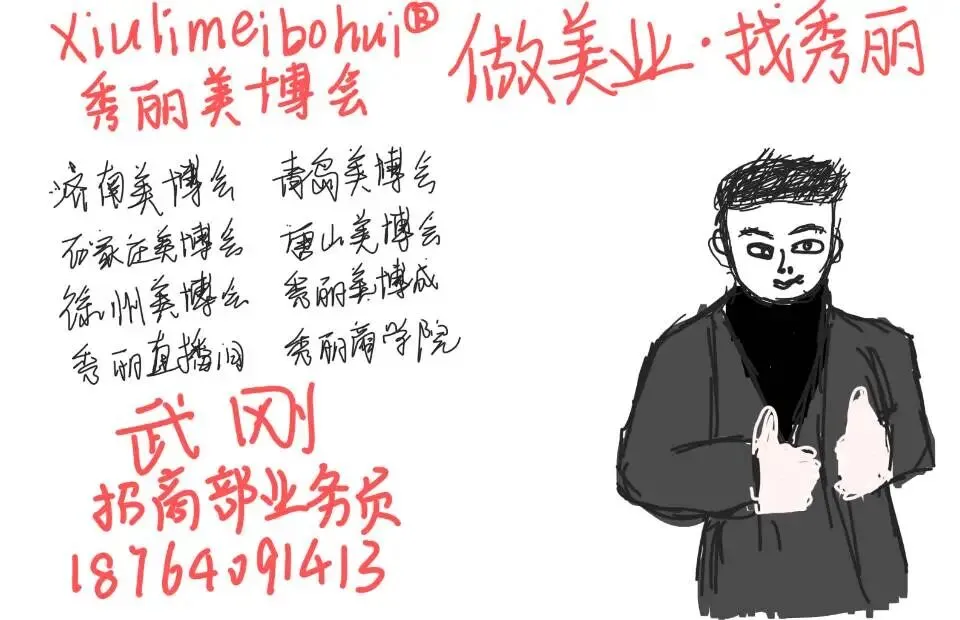 xiulimeibohui®
秀丽美博会
做美业·找秀丽
济南美博会 青岛美博会
石家庄美博会 唐山美博会
徐州美博会 秀丽美博成
秀丽直播间 秀丽商学院
武刚
招商部业务员
18764091413